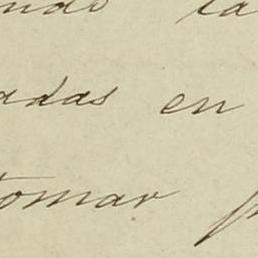 la
adas en
tomar